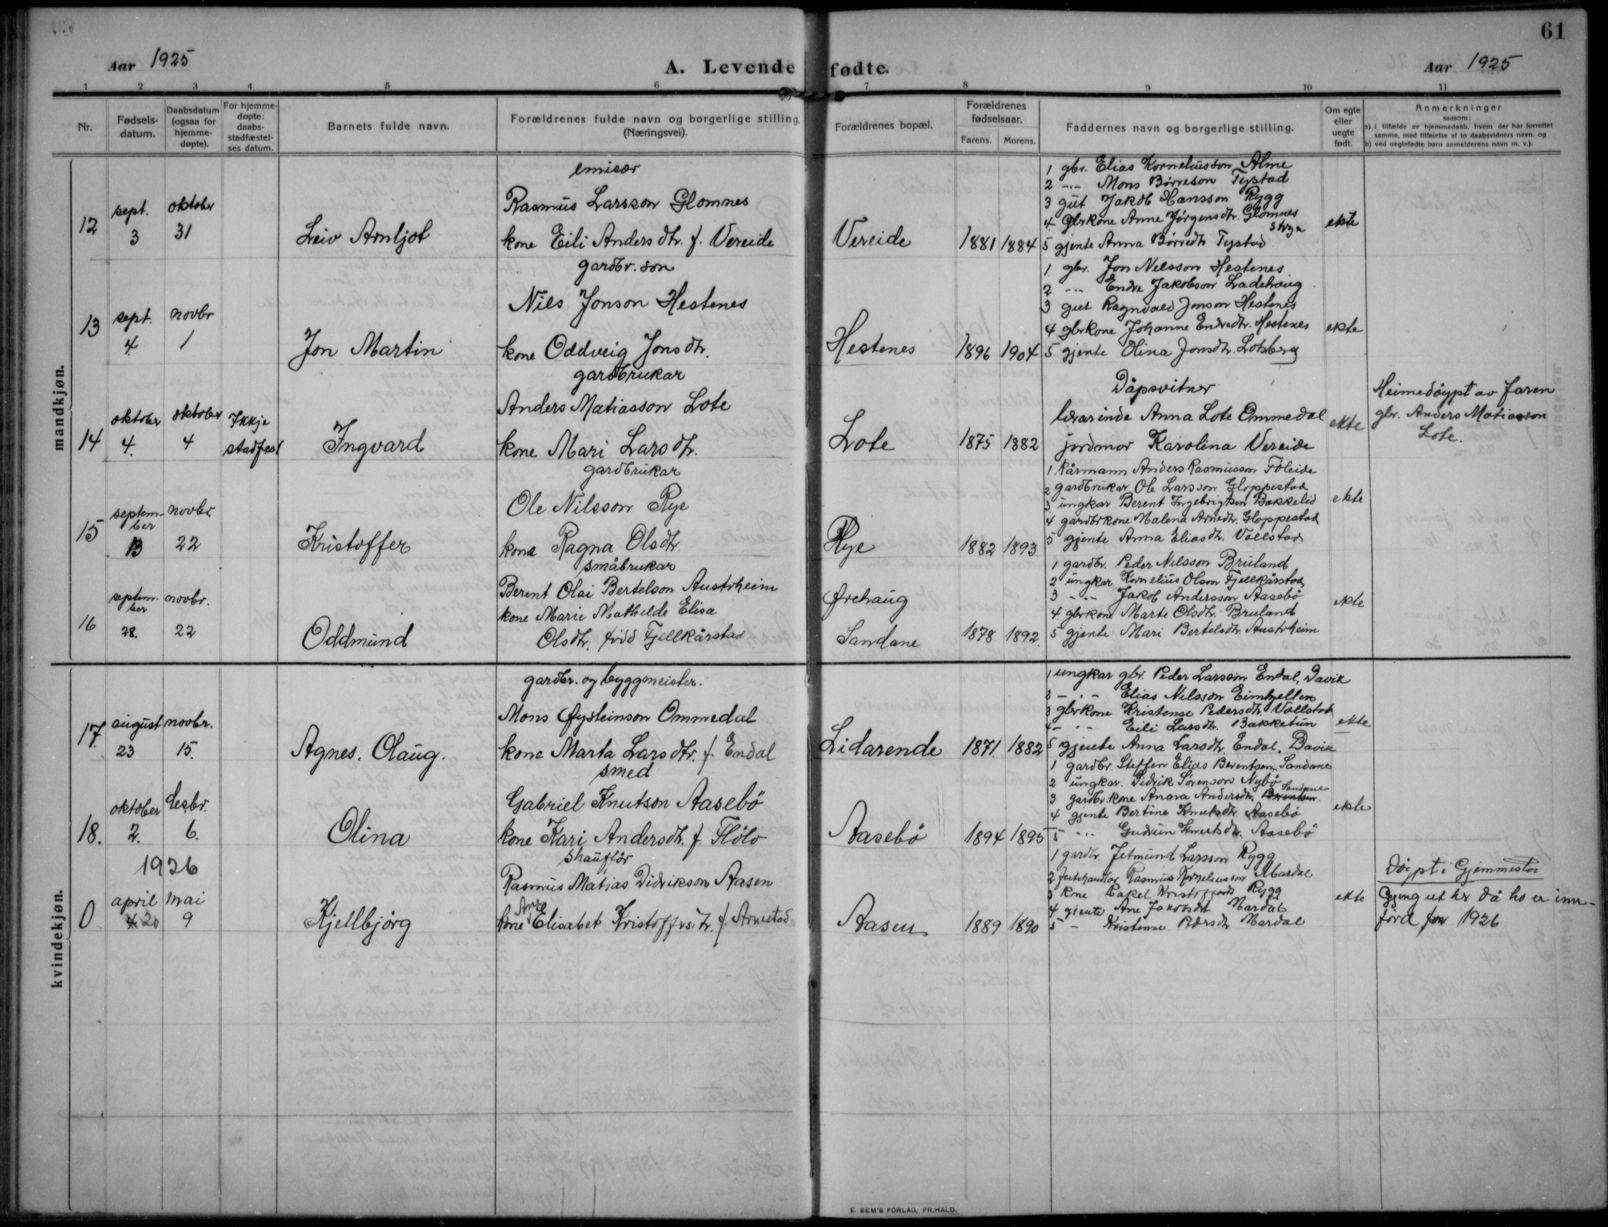 Aar 1925
A. Levende fødte.
Aar 1925
61
1 2 3 4 5 6 7 8 9 10 11
Nr.
Fødsels-
datum.
Daabsdatum
(ogsaa for
hjemme-
døpte).
For hjemme-
døpte:
daabs-
stadfæstel-
ses datum.
Barnets fulde navn.
Forældrenes fulde navn og borgerlige stilling
(Næringsvei).
Forældrenes bopæl.
Forældrenes
fødselsaar.
Farens. Morens.
Faddernes navn og borgerlige stilling.
Om egte
eller
uegte
født.
Anmerkninger
saasom:
a) i tilfælde av hjemmedaab, hvem der har forrettet
samme, med tilføielse af to daabsvidners navn, og
b) ved uegtefødte barn anmelderens navn m. v.).
mandkjøn.
12
sept.
3
oktober
31
Leiv Arnljot
emisær
Rasmus Larsson Glomnes
kone Eili Andersdtr. f. Vereide
Vereide
1881 1884
1 gbr. Elias Korneliusson Alme
2 -"- Mons Børreson Tystad
3 gut Jakob Hansson Rygg
4 Gbrkone Anne Jørgensdtr. Glomnes
Stryn
5 gjente Anna Børredtr Tystad
ekte
13
sept.
4
novbr
1
Jon Martin
gardbr. son
Nils Jonson Hestenes
kone Oddveig Jonsdtr.
Hestenes
1896 1904
1 gbr. Jon Nilsson Hestenes
2 -"- Endre Jakobson Ladehaug
3 gut Ragnvald Jonson Hestenes
4 gbrkone Johanne Endredtr. Hestenes
5 gjente Olina Jonsdtr. Lotsberg
ekte
14
oktober
4.
oktober
4
Ikkje
stadfest
Ingvard
gardbrukar
Anders Matiasson Lote
kone Mari Larsdtr.
Lote
1875 1882
Dåpsvitner
lærarinde Anna Lote Ommedal
jordmor Karolina Vereide
ekte
Heimedøypt av faren
gbr. Anders Matiasson
Lote.
15
septem-
ber
13
novbr.
22
Kristoffer
gardbrukar
Ole Nilsson Rye
kona Ragna Olsdtr.
Rye
1882 1893
1 kårmann Anders Rasmusson Föleide
2 gardbrukar Ole Larsson Gloppestad
3 ungkar Berent Ingebrigtsen Bakkelid
4 gardbrkone Malena Arnedtr. Gloppestad
5 gjente Anna Eliasdtr. Vollstad
ekte
16
septem-
ber
28.
novbr.
22
Oddmund
småbrukar
Berent Olai Bertelson Austrheim
kone Marie Mathilde Elisa
Olsdtr. född Fjellkårstad
Ørehaug
Sandane
1878 1892.
1 gardbr. Peder Nilsson Bruland
2 ungkar Kornelius Olson Fjellkårstad
3 -"- Jakob Andersson Aasebö
4 gbrkone Marte Olsdtr. Bruland
5 gjente Mari Bertelsdtr. Austrheim
ekte
kvindekjøn.
17.
august
23
novbr.
15.
Agnes. Olaug.
gardbr. og byggmeister.
Mons Øysteinson Ommedal
kone Marta Larsdtr. f. Endal
Lidarende
1871 1882
1 ungkar gbr. Peder Larsson Endal, Davik
2 -"- Elias Nilsson Eimhjellen
3 gbrkone Kristense Pedersdtr. Vollstad
4 -"- Eili Larsdtr. Bakketun
5 gjente Anna Larsdtr. Endal. Davik
ekte
18.
oktober
2.
desbr.
6.
Olina
smed
Gabriel Knutson Aasebö
kone Kari Andersdtr. f. Flölo
Aasebö
1894 1895
1 gardbr. Steffen Elias Berentsen Sandane
2 ungkar. Didrik Sörenson Nybö
3 gardbr. kone Anara Andersdtr. Berentsen Sandane
4 gjente Bertine Knutsdtr. Aasebö
5 -"- Gudrun Knutsdtr. Aasebö
ekte
1926
0
april
20
mai
9
Kjellbjörg
Shaufför
Rasmus Matias Didrikson Aasen
kone Ane Elisabet Kristoffersdtr. f. Arnestad
Aasen
1889 1890
1 gardbr. Jetmund Larsson Rygg
2 Rasmus Korneliusson Mardal
3 kone Rakel Kristoffersdtr. Rygg
4 gjente Ane Jakobsdt Mardal
5 - Kristense Pedersdtr Mardal
ekte
Döipt i Gjemmestad
Gjeng ut her då ho er inn-
förd for 1926
E. SEM'S FORLAG, FR.HALD.